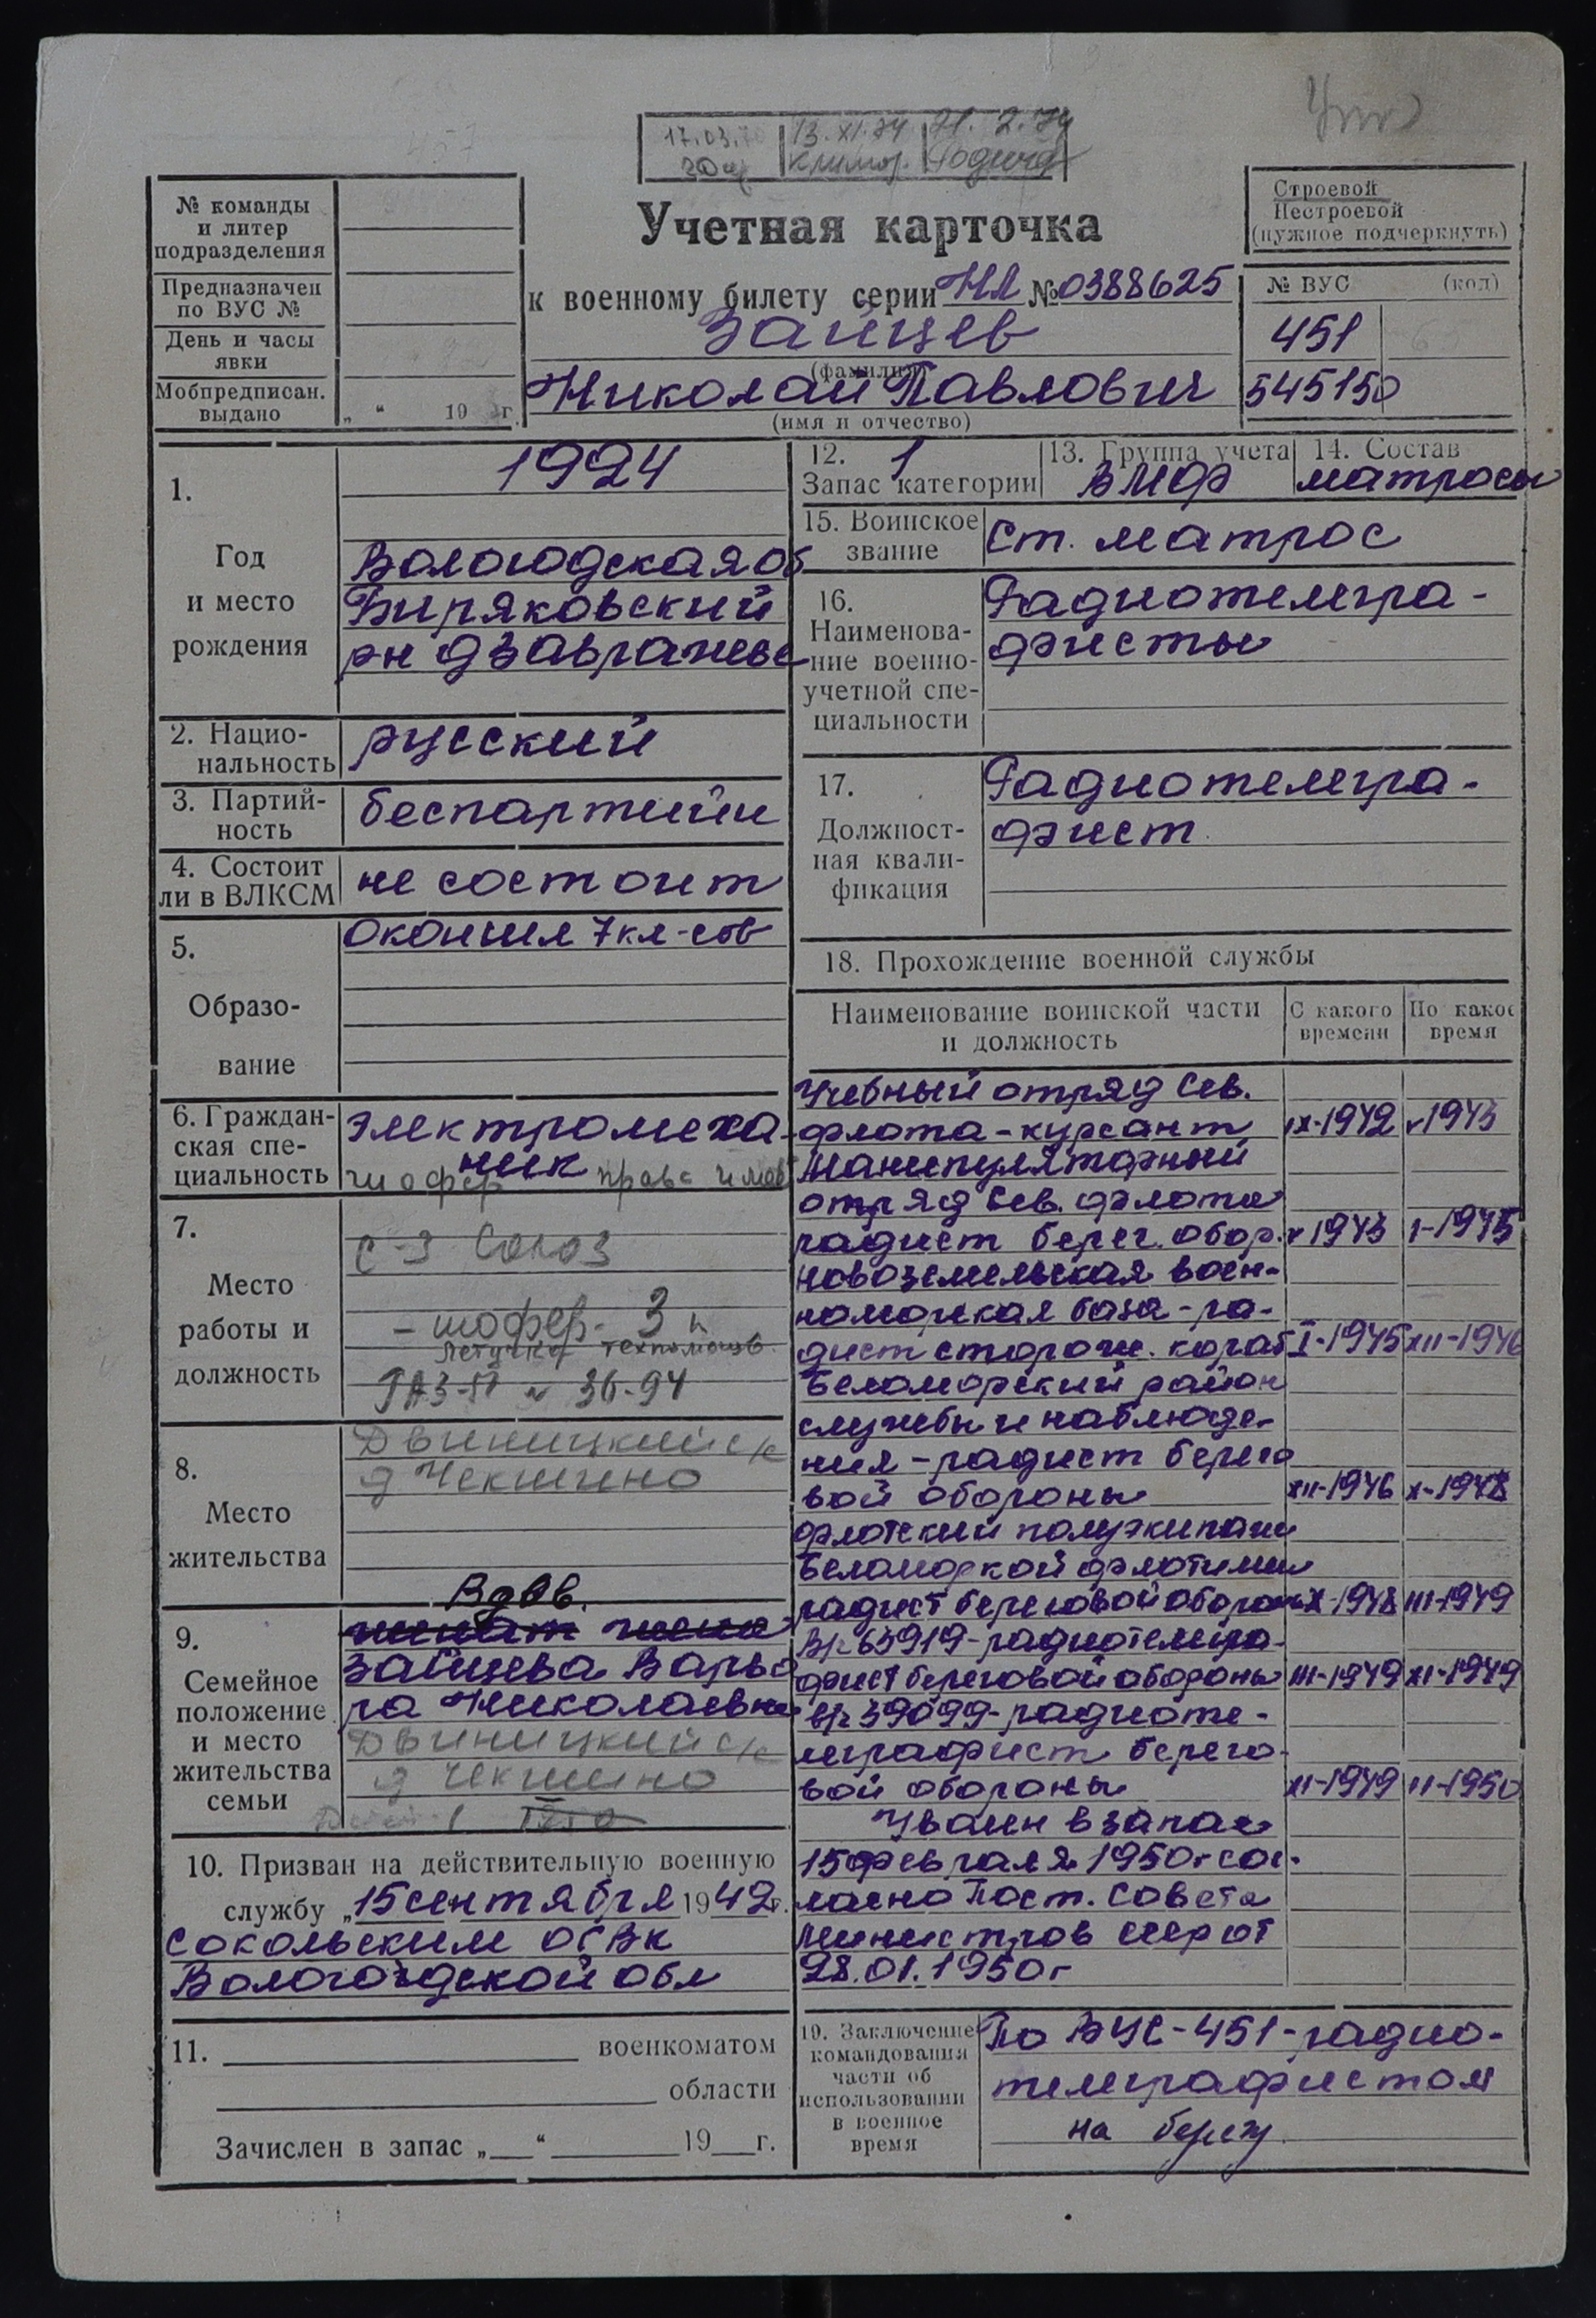 17.03.70 13.XI.74 21.2.79
Климов.
№ команды
и литер
подразделения
Предназначен
по ВУС №
День и часы
явки
Мобпредписан.
выдано
„ “ 19 г.
Учетная карточка
к военному билету серии НЛ № 0388625
Зайцев
(фамилия)
Николай Павлович
(имя и отчество)
Строевой
Нестроевой
(нужное подчеркнуть)
№ ВУС (код)
451
545150
1.
Год
и место
рождения
1924
Вологодская об
Биряковский
рн д Завражье
2. Нацио-
нальность
русский
3. Партий-
ность
беспартийн
4. Состоит
ли в ВЛКСМ
не состоит
5.
Образо-
вание
окончил 7 кл-сов
6. Граждан-
ская спе-
циальность
электромеха-
ник
шофер права имеет
7.
Место
работы и
должность
с-з Союз
- шофер- 3 к
летучка техпомощь.
ГАЗ-51 № 36-94
8.
Место
жительства
Двиницкий с/с
д Чекшино
9.
Семейное
положение
и место
жительства
семьи
Вдов.
женат жена
Зайцева Варва
ра Николаевна
Двиницкий с/с
д Чекшино
Детей 1
10. Призван на действительную военную
службу „15 сентября 1942 г.
Сокольским ОГВК
Вологодской обл
11. военкоматом
области
Зачислен в запас „ “ 19 г.
12. 1
Запас категории
13. Группа учета
ВМФ
14. Состав
матросы
15. Воинское
звание
Ст. матрос
16.
Наименова-
ние военно-
учетной спе-
циальности
Радиотелегра-
фисты
17.
Должност-
ная квали-
фикация
Радиотелегра-
фист.
18. Прохождение военной службы
Наименование воинской части
и должность
С какого
времени
По какое
время
Учебный отряд Сев.
флота-курсант IX-1942 V1943
Манипуляторный
отряд Сев. флота
радист берег. обор. V 1943 I-1945
Новоземельская воен-
номорская база - ра-
дист сторож. кораб I-1945 XII-1946
Беломорский район
службы и наблюде-
ния - радист берего
вой обороны XII-1946 X-1948
флотский полуэкипаж
Беломоркой флотилии
радист береговой обороны X-1948 III-1949
В/ч 63919-радиотелегра-
фист береговой обороны III-1949 XI-1949
В/ч 39099-радиоте-
леграфист берего-
вой обороны XI-1949 II-1950
Уволен в запас
15 февраля 1950г сог-
ласно Пост. Совета
Министров СССР от
28.01.1950г
19. Заключение
командования
части об
использовании
в военное
время
По ВУС-451-радио-
телеграфистом
на берегу